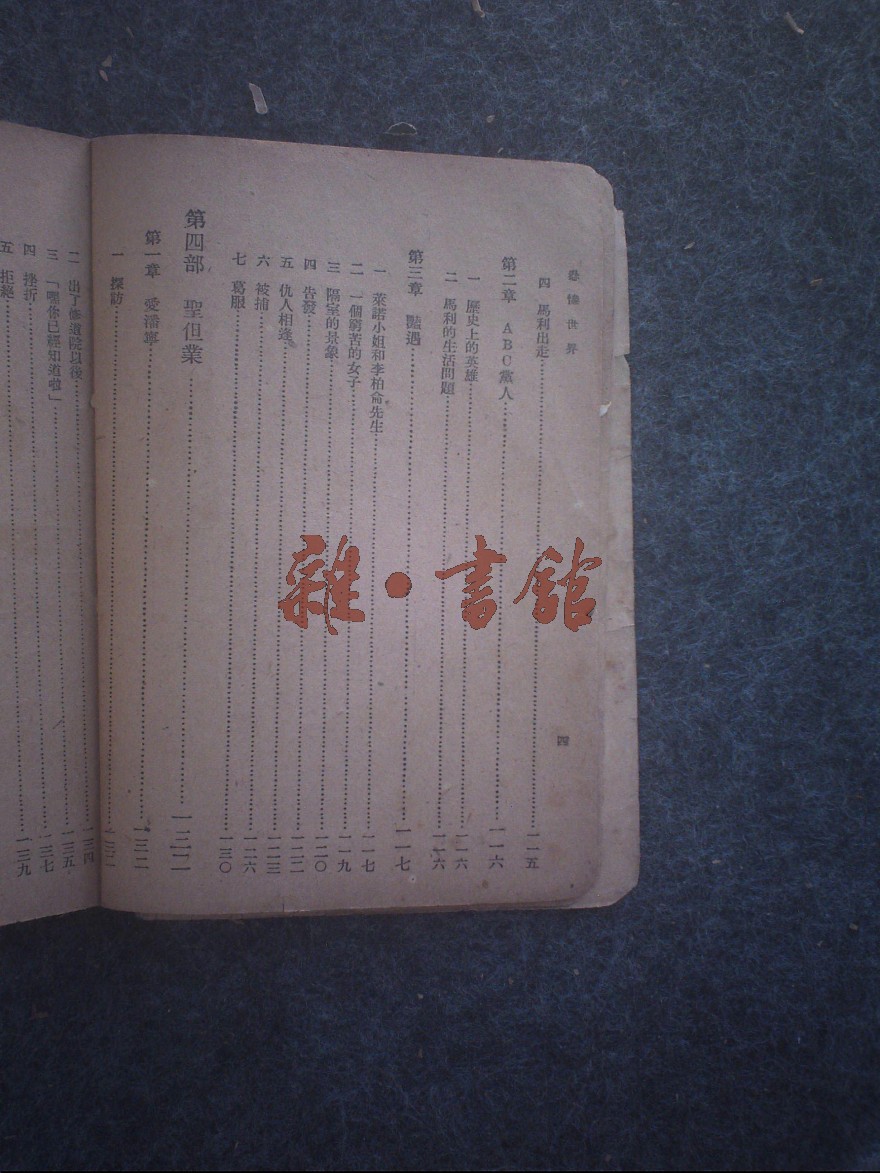 悲慘世界
四
四 馬利出走……一一五
第二章 ABC黨人……一一六
一 歷史上的英雄……一一六
二 馬利的生活問題……一一六
第三章 豔遇……一一七
一 萊諾小姐和李柏侖先生……一一七
二 一個窮苦的女子……一一九
三 隔室的景象……一二〇
四 告發……一二二
五 仇人相逢……一二三
六 被捕……一二六
七 葛服……一三〇
第四部 聖但業……一三二
第一章 愛潘寧……一三二
一 探訪……一三二
二 出了修道院以後……一三四
三 「嘿你已經知道啦」……一三五
四 挫折……一三七
五 拒絕……一三九
雜·書館